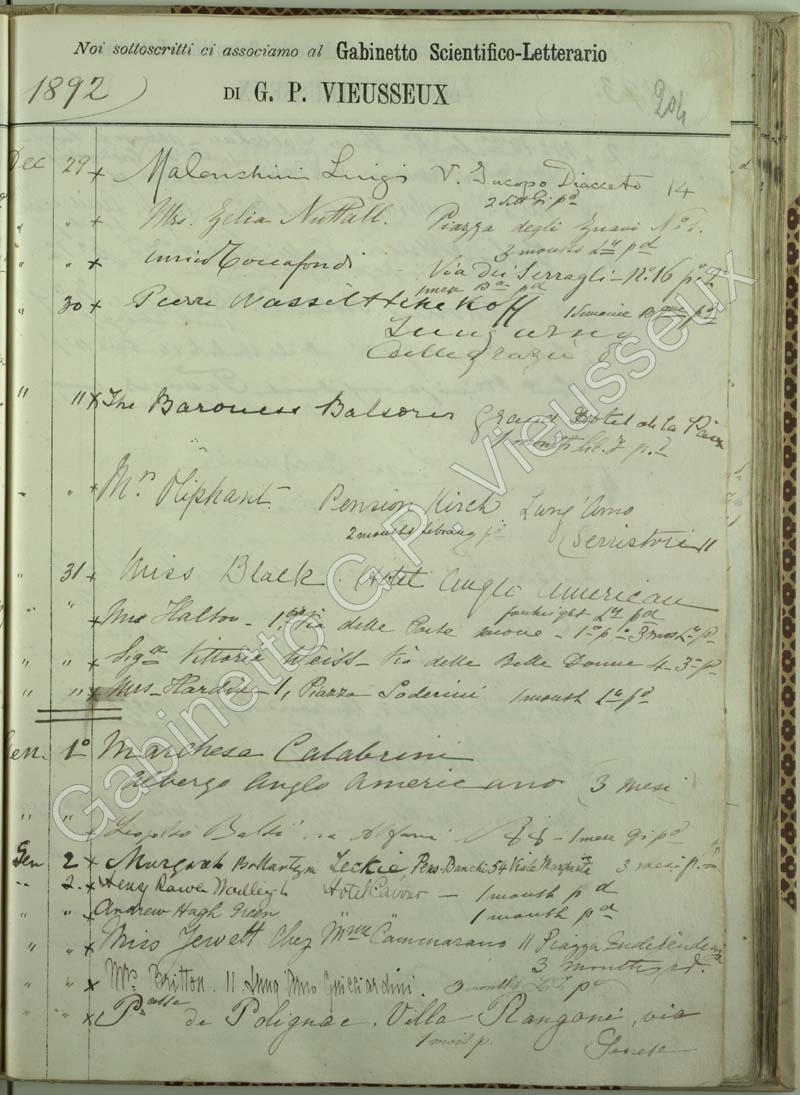 Noi sottoscritti ci associamo al Gabinetto Scientifico-Letterario
1892
DI G. P. VIEUSSEUX
204
Dec 29 x Malenchini Luigi V. Jacopo Diacceto 14
2 Sett Gi pd
" " x Mrs. Zelia Nuttall. Piazza degli Zuavi No 1.
3 months Ly pd
" " x Enrico Toccafondi Via dei Serragli - No. 16 po
1 mese pd
" 30 x Pierre Wassiltchikoff 1 Semaine
Lung'arno
delle grazie
" " x The Baroness Grand Hotel de la Paix
1 month
" " x Mrs Oliphant. Pension Kirch Lung'Arno
2 months Library Serristori 11
" 31 x Miss Black. Hotel Anglo American
fortnight Ly pd
" x Mrs Halton - Via delle Porte nuove - 1o po 3 mos Ly p.
" " x Siga Vittoria Weiss - Via delle Belle Donne 4 - 3o p.
" " x Mrs Hardie - 1, Piazza Soderini 1 month
Gen. 1o Marchesa Calabrini
Albergo Anglo Americano 3 mesi
" " x Leopoldo via Alfani - 1 mese gi pd
Gen 2 x Ballantyne Leckie, Pens. Banchi 54 Viale 3 mesi
" 2. x Henry Hotel Cavour - 1 month pd
" " x Andrew Hugh Green " " 1 month pd
" " x Miss Jewett Chez Mme Cammarano 11 Piazza Indipendenza
3 months pd.
" " x Mrs Britton. 11 Lung'Arno Guicciardini. 3 months pd
" " x Psse de Polignac. Villa Rangoni, via
1 mois p. Senese
Gabinetto G.P. Vieusseux